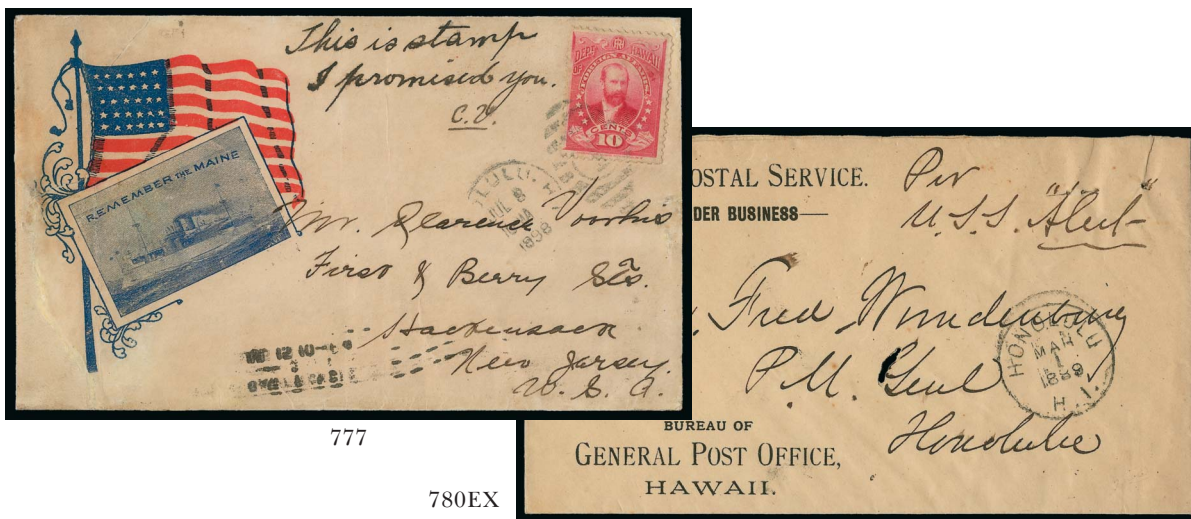 This is stamp
I promised you.
C.V.
DEPT. HAWAII
FOREIGN AFFAIRS
CENTS
10
REMEMBER THE MAINE
LULU
8
1898
Mr. Clarence Voorhis
First & Berry Sts.
Hackensack
New Jersey.
U. S. A.
12 10
777
OSTAL SERVICE.
DER BUSINESS
Per
U.S.S. "Alert"
Fred Wundenburg
P.M. Genl
Honolulu
HONOLULU
MAR
1
1889
H. I.
BUREAU OF
GENERAL POST OFFICE,
HAWAII.
780EX